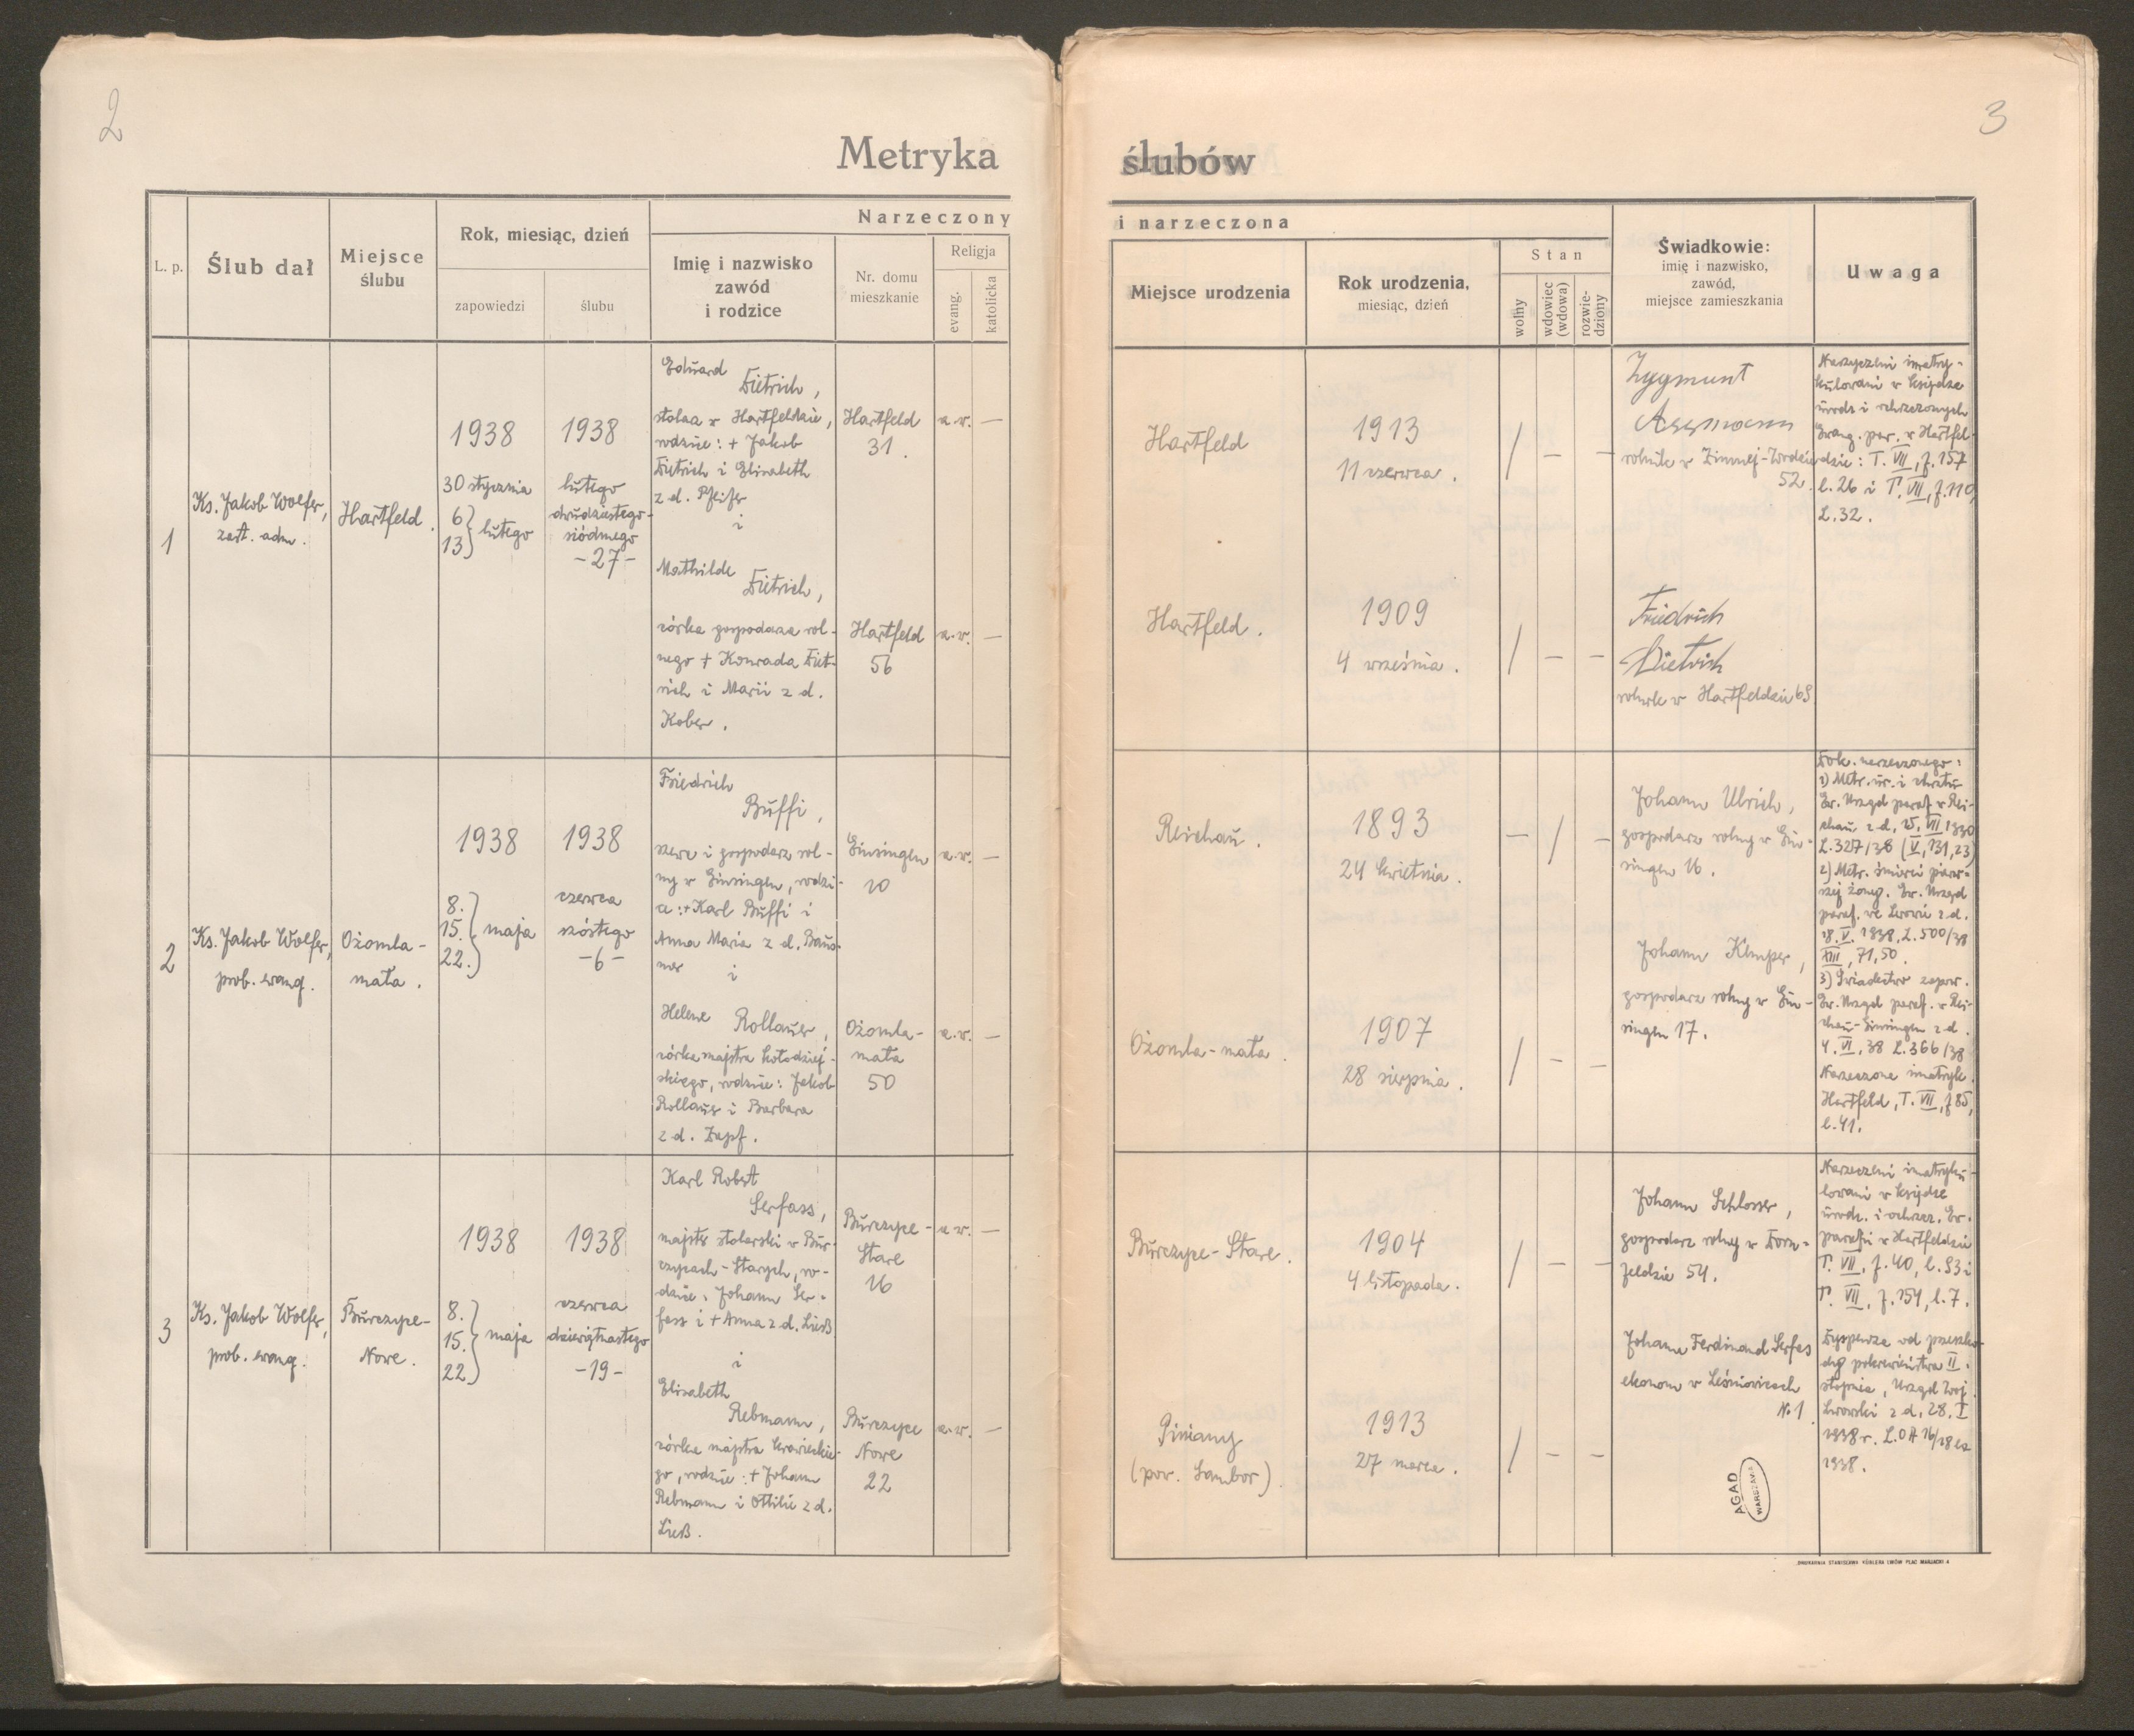 2
Metryka
L. p.
Ślub dał
Miejsce
ślubu
Rok, miesiąc, dzień
zapowiedzi
ślubu
Narzeczony
Imię i nazwisko
zawód
i rodzice
Nr. domu
mieszkanie
Religja
evang.
katolicka
1
Ks. Jakob Wolfer,
zast. adm.
Hartfeld.
1938
30 stycznia
6
13 } lutego
1938
lutego
dwudziestego-
siódmego
-27-
Eduard
Dietrich,
stolarz w Hartfeldzie,
rodzice: + Jakob
Dietrich i Elisabeth
z d. Pfeifer
i
Mathilde
Dietrich,
córka gospodarza rol-
nego + Konrada Diet-
rich i Marii z d.
Kober.
Hartfeld
31.
a.w. —
Hartfeld
56
a.w. —
2
Ks. Jakob Wolfer,
prob. ewang.
Ożomla-
mała.
1938
8.
15. } maja
22.
1938
czerwca
szóstego
-6-
Friedrich
Buffi,
szewc i gospodarz rol-
ny w Einsingen, rodzi-
ce: + Karl Buffi i
Anna Maria z d.
i
Helene Rollauer,
córka majstra kołodziej-
skiego, rodzice: Jakob
Rollauer i Barbara
z d. Zapf.
Einsingen
10
a.w. —
Ożomla-
mała
50
a.w. —
3
Ks. Jakob Wolfer,
prob. ewang.
Burczyce-
Nowe.
1938
8.
15. } maja
22.
1938
czerwca
dziewiętnastego
-19-
Karl Robert
Serfass,
majster stolarski w Bur-
czycach-Starych, ro-
dzice: Johann Ser-
fass i + Anna z d. Ließ
i
Elisabeth
Rebmann,
córka majstra krawieckie-
go, rodzice: + Johann
Rebmann i Ottilie z d.
Ließ.
Burczyce-
Stare
16
a.w. —
Burczyce
Nowe
22
a.w. —
3
ślubów
i narzeczona
Miejsce urodzenia
Rok urodzenia,
miesiąc, dzień
Stan
wolny
wdowiec
(wdowa)
rozwie-
dziony
Świadkowie:
imię i nazwisko,
zawód,
miejsce zamieszkania
Uwaga
Hartfeld
1913
11 czerwca.
/ — —
Hartfeld.
1909
4 września.
/ — —
Zygmunt
Assmann
rolnik w Zimnej-Wodzie
52.
Friedrich
Dietrich
rolnik w Hartfeldzie 69
Narzyczeni imatry-
kulowani w księdze
urodz i ochrzczonych
Ewang. par. w Hartfel-
dzie: T. VII, f. 157
l. 26 i T. VII, f. 110,
L. 32.
Reichau.
1893
24 kwietnia.
— / —
Ożomla-mała.
1907
28 sierpnia.
/ — —
Johann Ulrich,
gospodarz rolny w Ein-
singen 16.
Johann Klmper,
gospodarz rolny w Ein-
singen 17.
Dok. narzeczonego:
1) Metr. ur. i chrztu
Ew. Urząd paraf. w Rei-
chau z d. 25. VII 1930
L. 327/38 (V, 131, 23)
2) Metr. śmierci pierw-
szej żony. Ew. Urząd
paraf. we Lwowie z d.
18. V. 1938, L. 500/38
XIII, 71, 50.
3) Świadectwo zapow.
Ew. Urząd paraf. w Rei-
chau-Einsingen z d.
4. VI, 38 L. 366/38
Narzeczona imatryk.
Hartfeld, T. VII, f 85,
l. 41.
Burczyce-Stare.
1904
4 listopada.
/ — —
Piniany
(pow. Sambor).
1913
27 marca.
/ — —
Johann Schlosser,
gospodarz rolny w Dorn-
feldzie 54.
Johann Ferdinand Serfas
ekonom w Leśniowicach
N. 1
Narzeczeni imatryku-
lowani w księdze
urodz. i ochrzcz. Ew.
parafii w Hartfeldzie
T. VII, f. 40, l. 93 i
T. VII, f. 154, l. 7.
Dyspenza od przeszko-
dy pokrewieństwa II.
stopnia, Urząd Woj.
Lwowski z d. 28. I
1938 r. L.
1938.
AGAD
WARSZAWA
DRUKARNIA STANISŁAWA KÜBLERA LWÓW PLAC MARJACKI 4